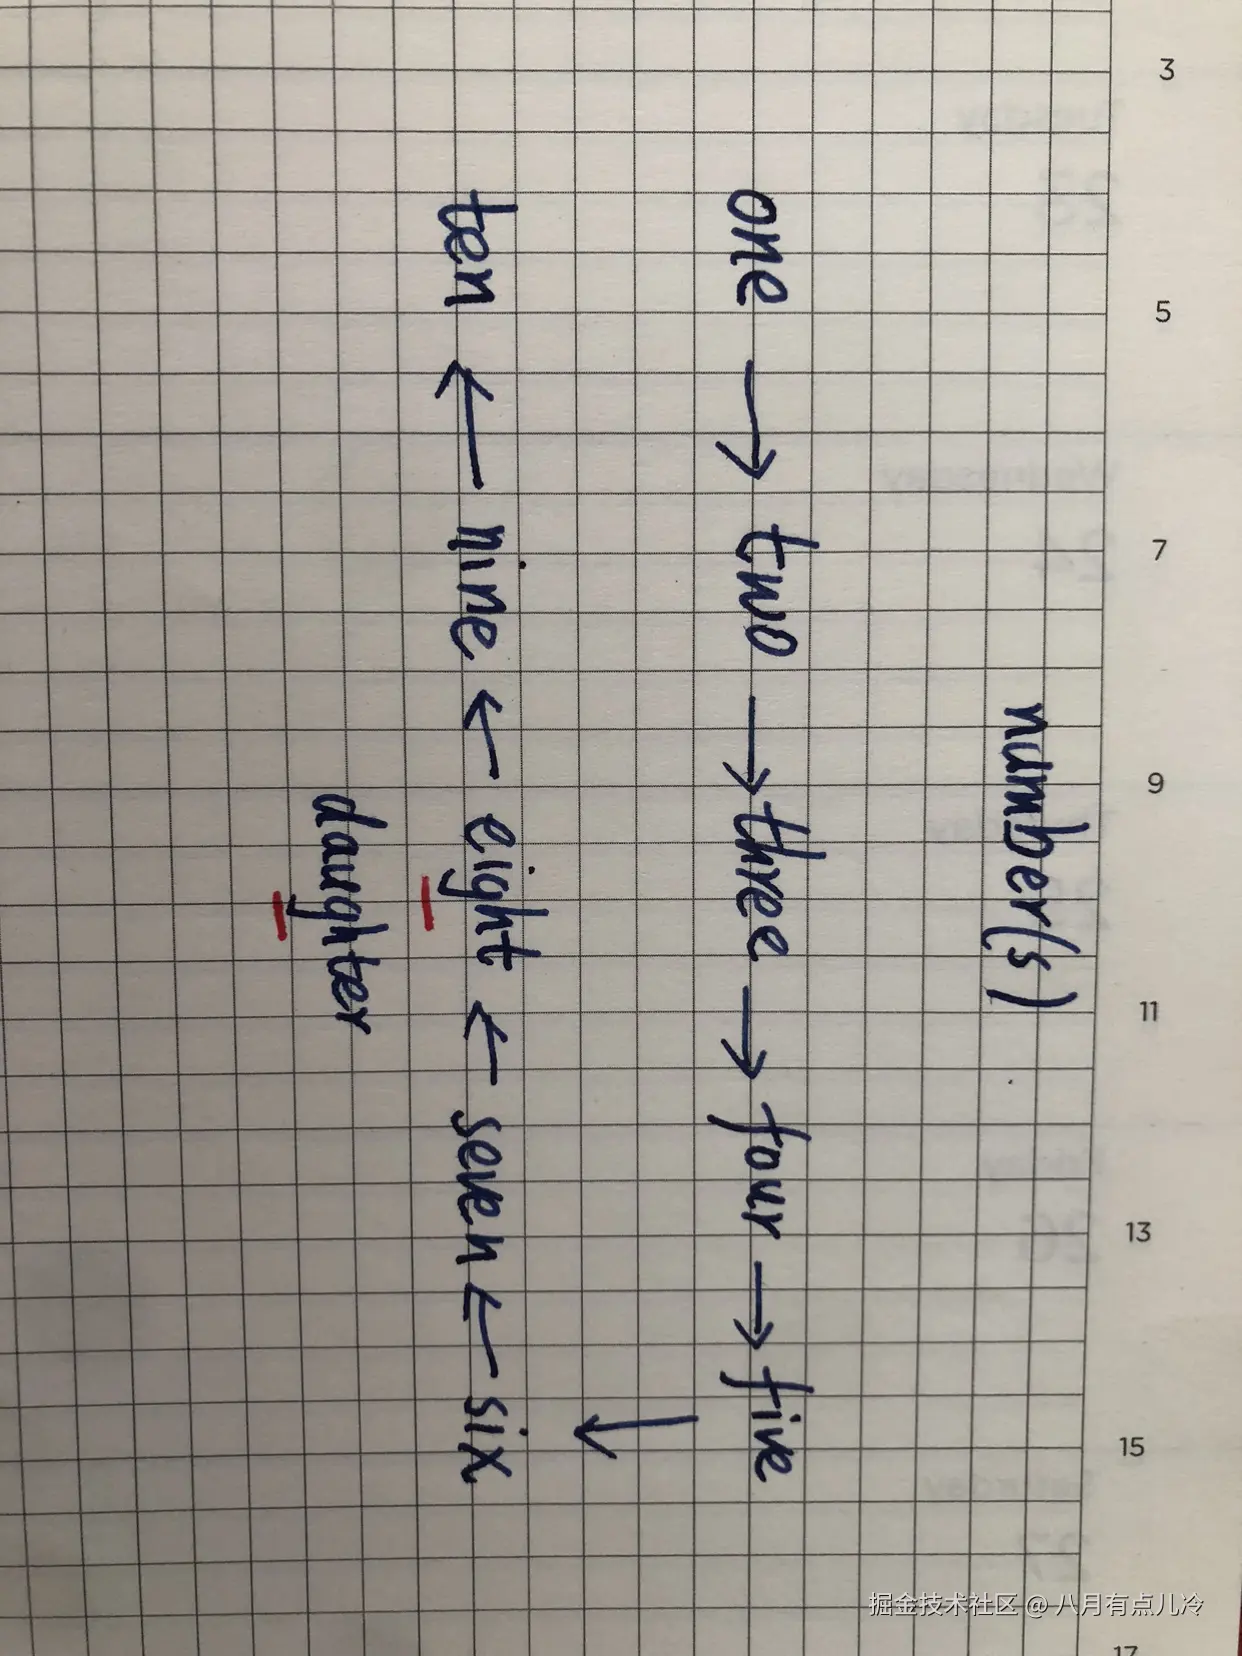 number(s)
one → two → three → four → five
↓
ten ← nine ← eight ← seven ← six
daughter
3
5
7
9
11
13
15
17
掘金技术社区 @ 八月有点儿冷